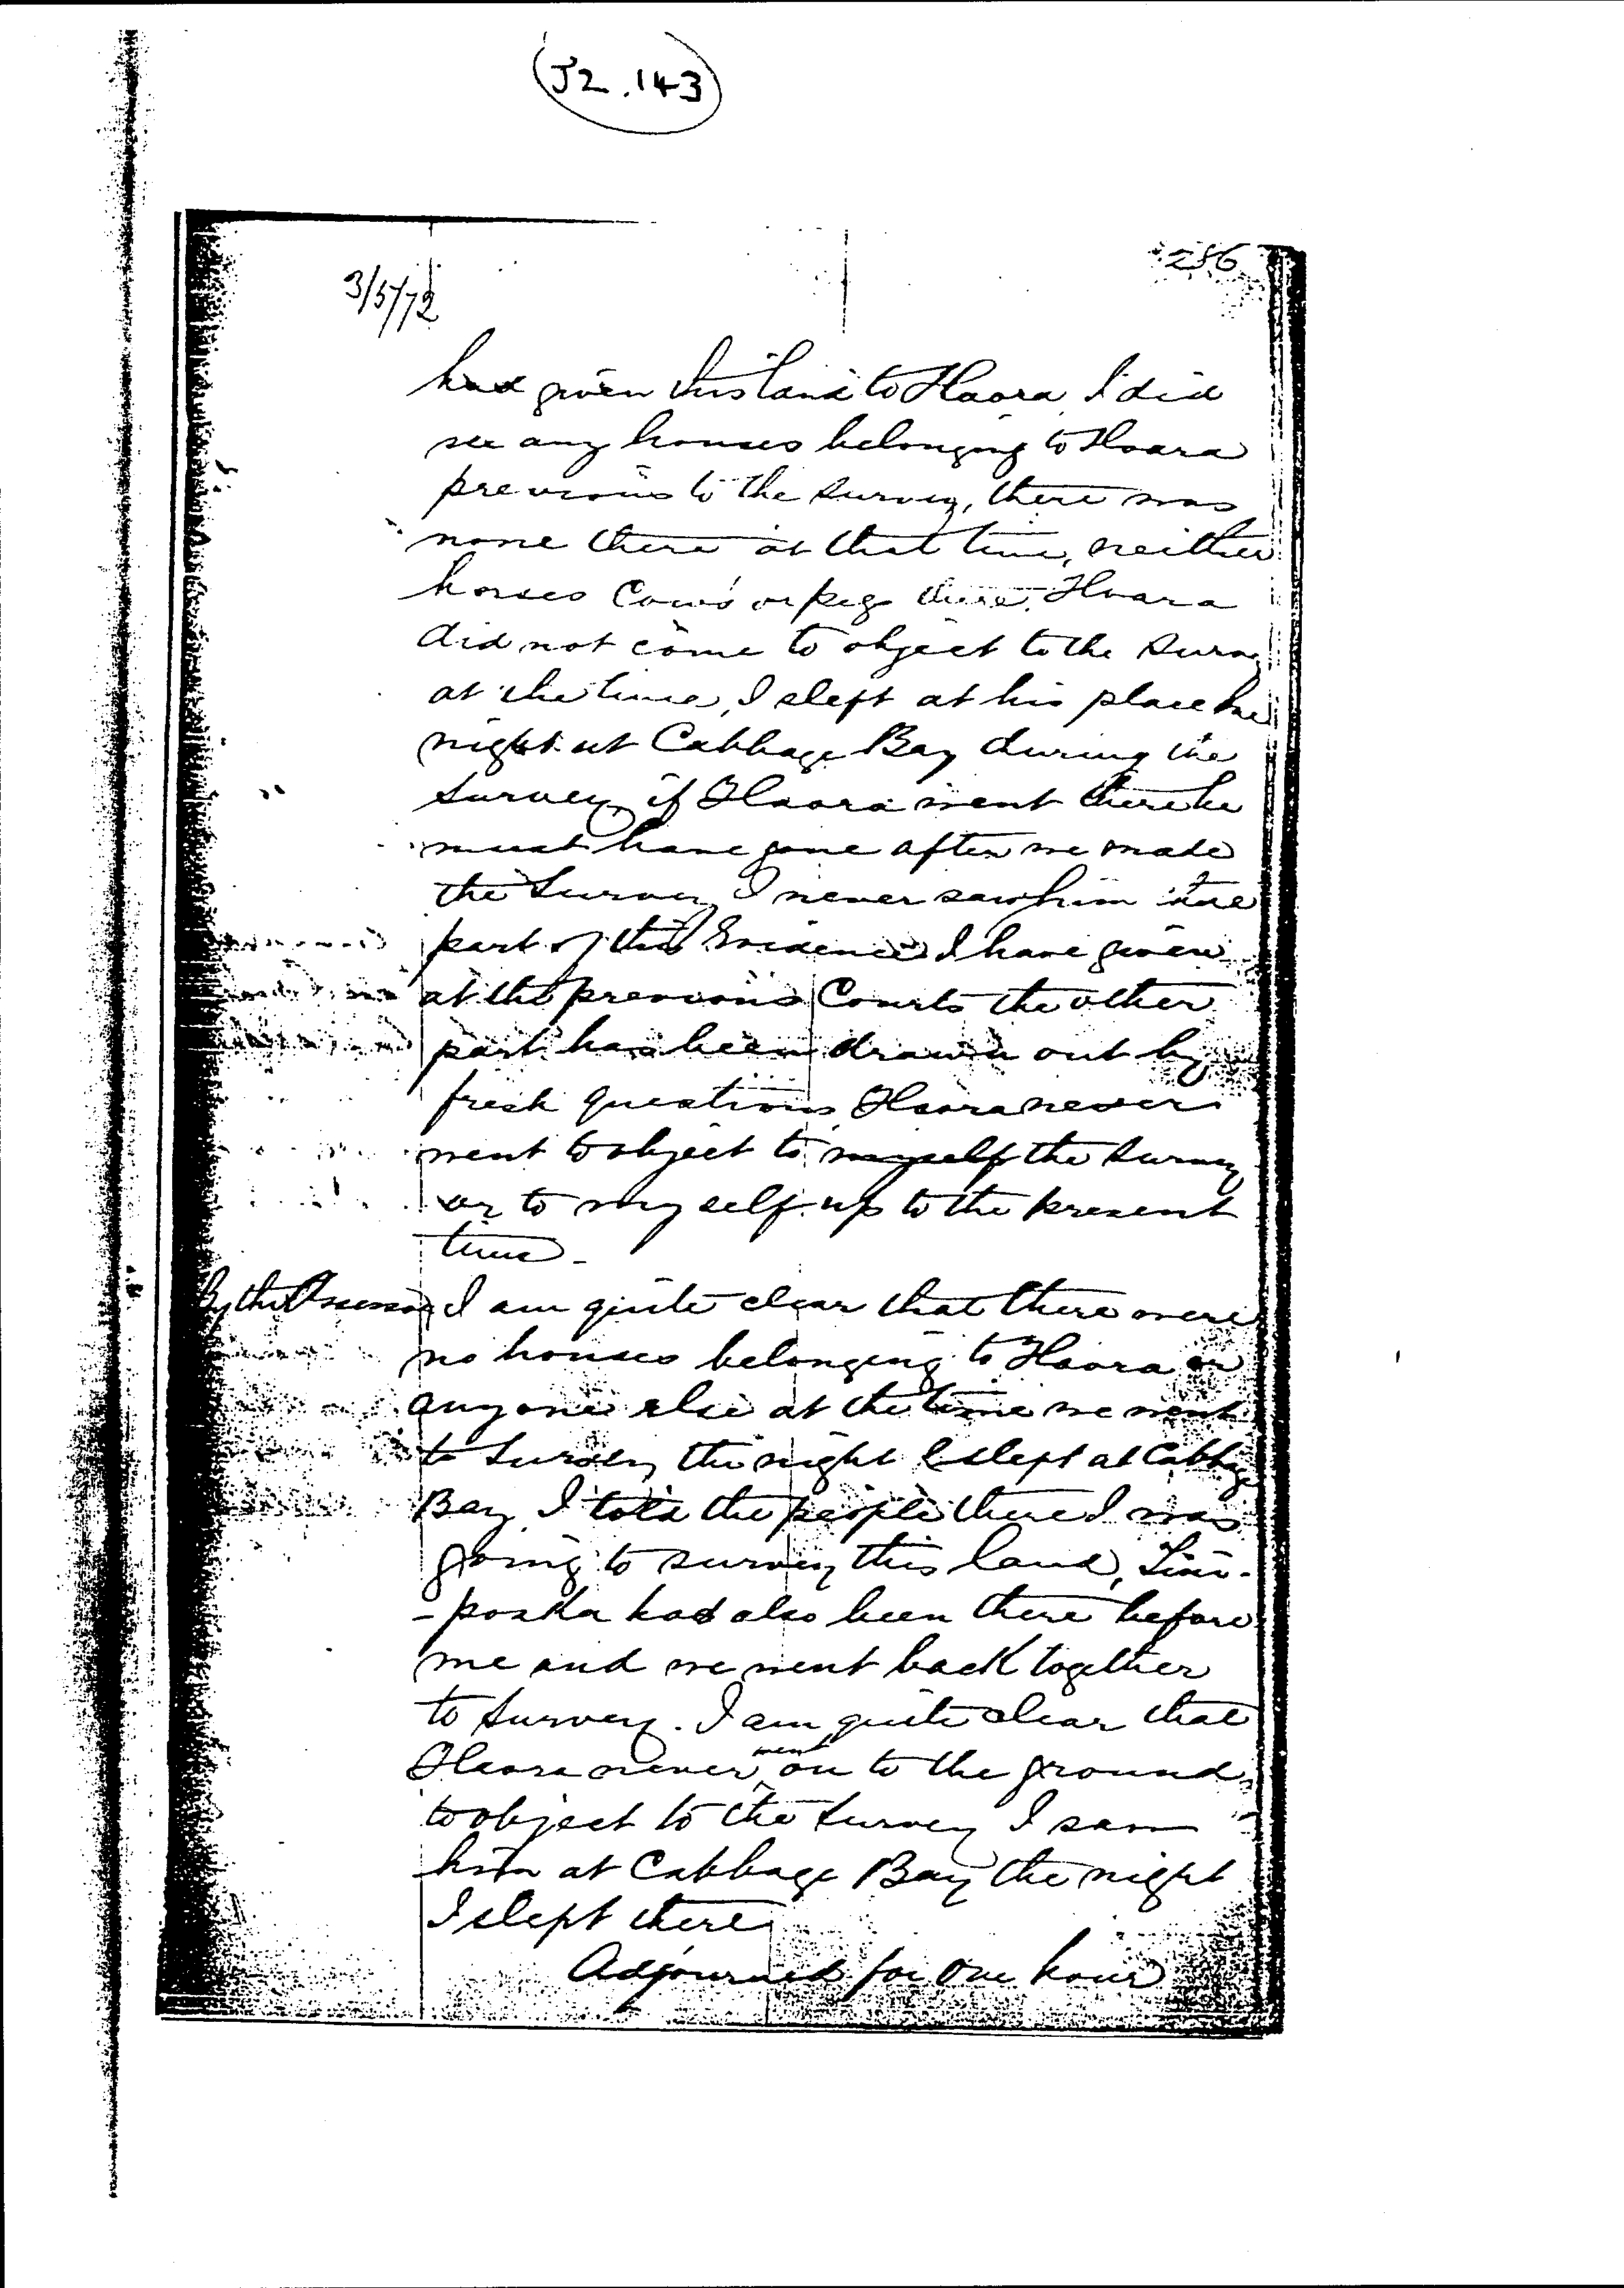 J2.143
286
3/5/72
had given this land to Haora I did
see any houses belonging to Haora
previous to the survey, there was
none there at that time, neither
horses Cows or pigs there. Haora
did not come to object to the survey
at the time, I slept at his place one
night at Cabbage Bay during the
survey, if Haora went there he
must have gone after we made
the survey I never saw him
part of this Evidence I have given
at the previous Courts the other
part has been drawn out by
fresh questions, Haora never
went to object to myself the survey
or to my self up to the present
time -
By the Assessor I am quite clear that there were
no houses belonging to Haora or
anyone else at the time we went
to survey the night I slept at Cabbage
Bay I told the people there I was
going to survey this land,
had also been there before
me and we went back together
to survey. I am quite clear that
Haora never went on to the ground
to object to the survey I saw
him at Cabbage Bay the night
I slept there
Adjourned for one hour